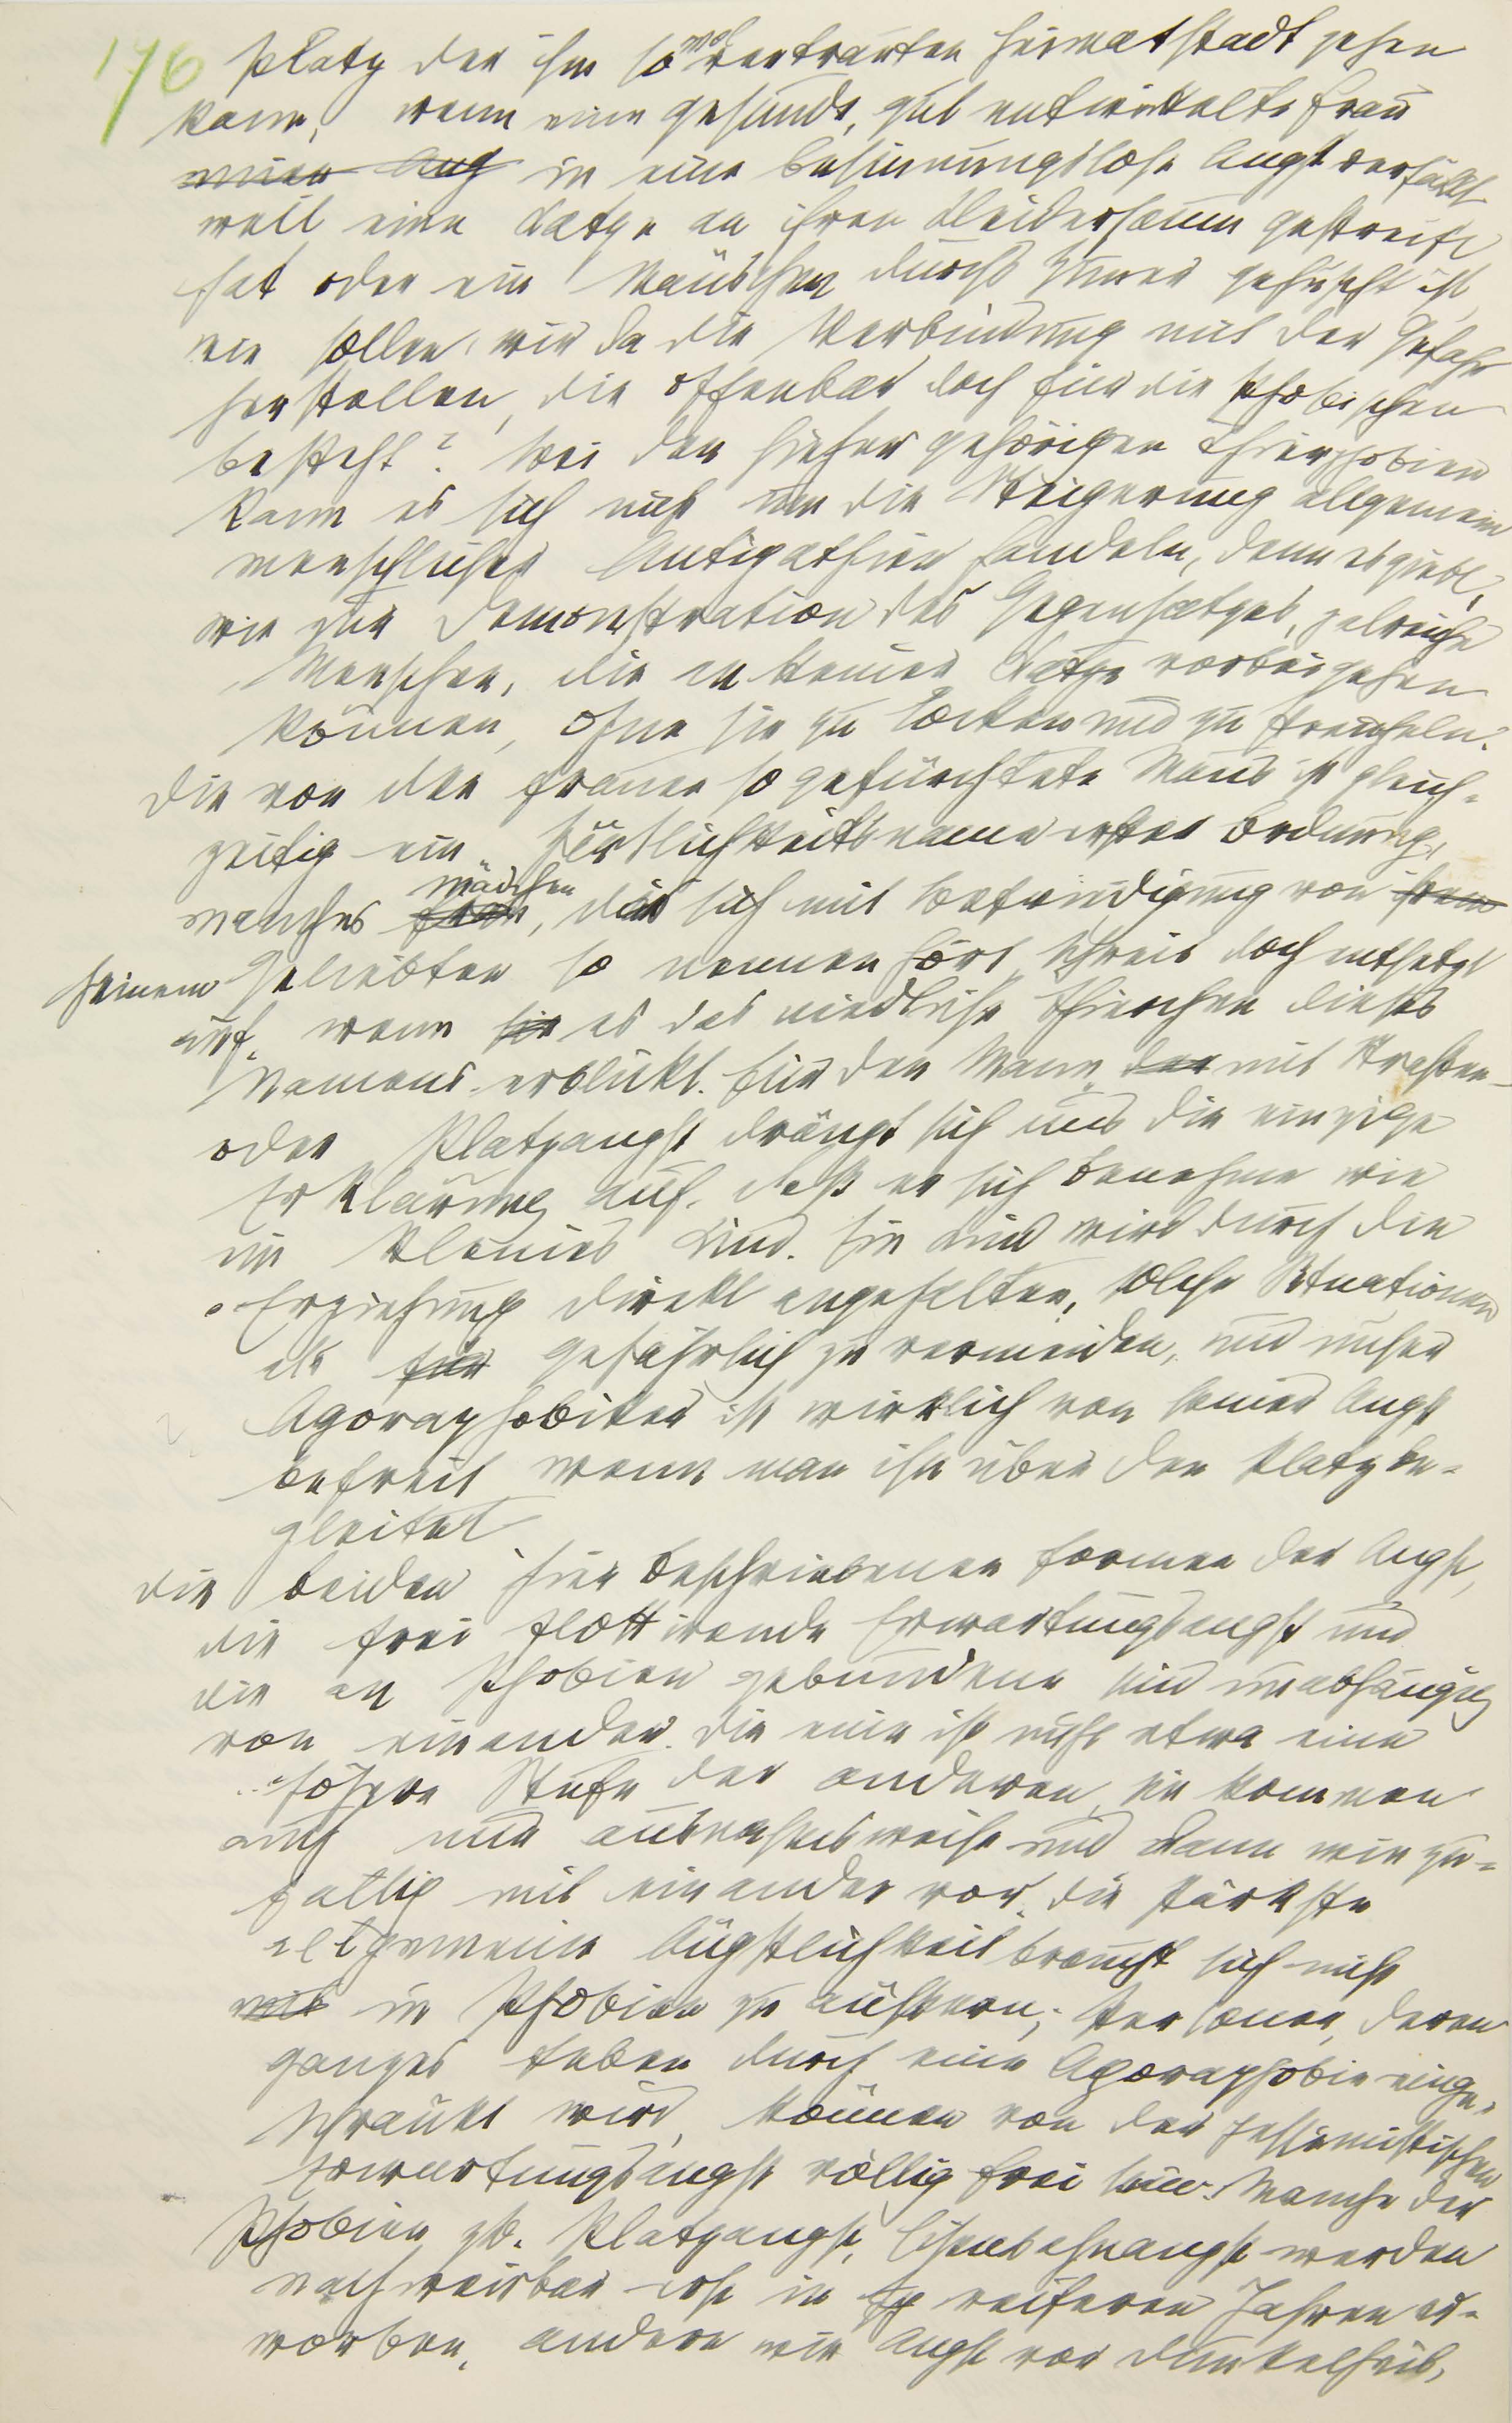 176
Platz der ihm so wol vertrauten Heimatstadt gehen
kann, wenn eine gesunde, gut entwickelte Frau
einer Ang in eine besinnungslose Angst verfällt
weil eine Katze an ihren Kleidersaum gestreift
hat oder ein Mäuschen durchs Zimmer gehuscht ist,
wie sollen wir da die Verbindung mit der Gefahr
herstellen, die offenbar doch für die Phobischen
besteht? Bei den hieher gehörigen Thierphobien
kann es sich nicht um die Steigerung allgemein
menschlicher Antipathien handeln, denn es giebt,
wie zur Demonstration des Gegensatzes, zalreiche
Menschen, die an keiner Katze vorbeigehen
können, ohne sie zu locken und zu streicheln.
Die von den Frauen so gefürchtete Maus ist gleich-
zeitig ein Zärtlichkeitsname erster Ordnung,
manches Frau, Mädchen, das sich mit Befriedigung von ihrem
seinem Geliebten so nennen hört, schreit doch entsetzt
auf, wenn sie es das niedliche Thierchen dieses
Namens erblickt. Für den Mann der mit Straßen-
oder Platzangst drängt sich uns die einzige
Erklärung auf, daß er sich benehme wie
ein kleines Kind. Ein Kind wird durch die
Erziehung direkt angehalten, solche Situationen
als für gefährlich zu vermeiden, und unser
Agoraphobiker ist wirklich von seiner Angst
befreit, wenn man ihn über den Platz be-
gleitet.
Die beiden hier beschriebenen Formen der Angst,
die frei flottirende Erwartungsangst und
die an Phobien gebundene sind unabhängig
von einander. Die eine ist nicht etwa eine
höhere Stufe der anderen, sie kommen
auch nur ausnahmsweise und dann wie zu-
fällig mit einander vor. Die stärkste
allgemeine Ängstlichkeit braucht sich nicht
mit in Phobien zu äußern; Personen, deren
ganzes Leben durch eine Agoraphobie einge-
schränkt wird, können von der pessimistischen
Erwartungsangst völlig frei sein. Manche der
Phobien zb. Platzangst, Eisenbahnangst werden
nachweisbar erst in reiferen Jahren er-
worben, andere wie Angst vor Dunkelheit,